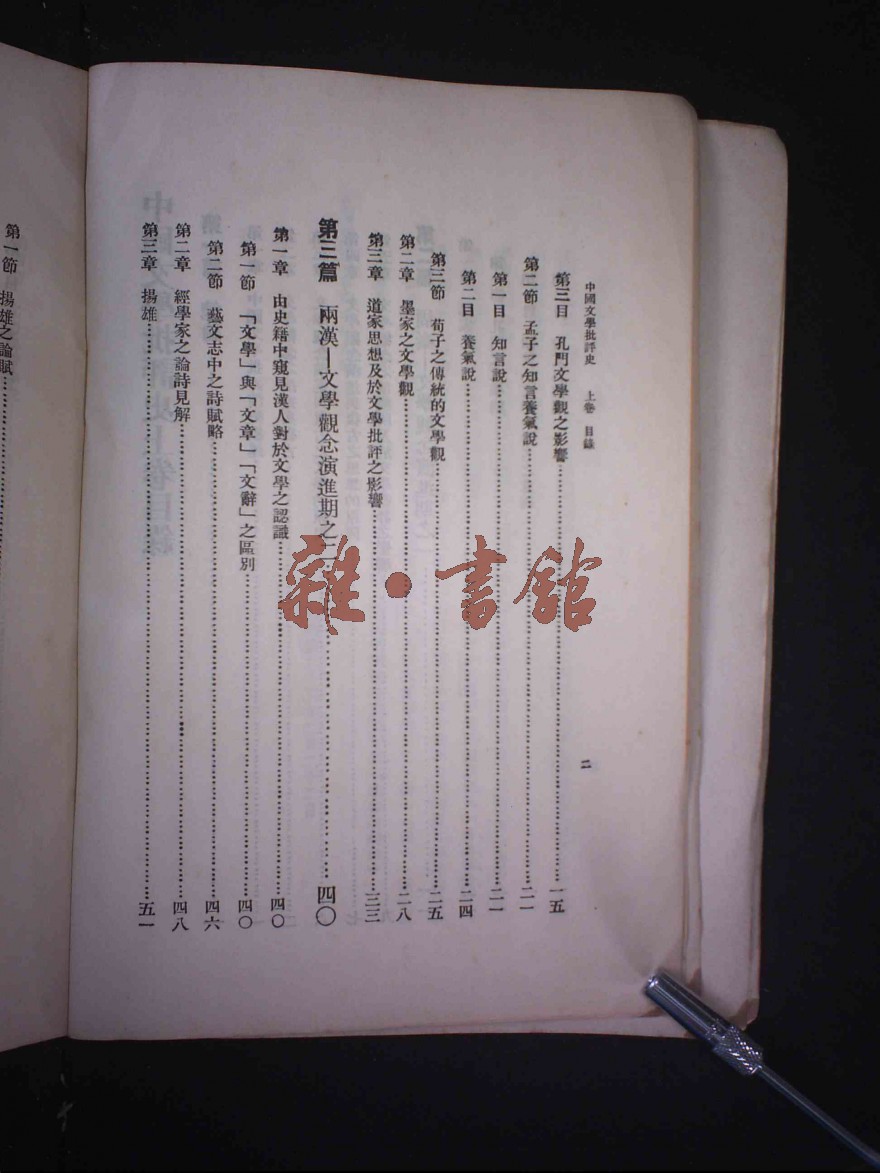 中國文學批評史 上卷 目錄 二
第三目 孔門文學觀之影響 一五
第二節 孟子之知言養氣說 二一
第一目 知言說 二一
第二目 養氣說 二四
第三節 荀子之傳統的文學觀 二五
第二章 墨家之文學觀 二八
第三章 道家思想及於文學批評之影響 三三
第三篇 兩漢—文學觀念演進期之二 四〇
第一章 由史籍中窺見漢人對於文學之認識 四〇
第一節 「文學」與「文章」「文辭」之區別 四〇
第二節 藝文志中之詩賦略 四六
第二章 經學家之論詩見解 四八
第三章 揚雄 五一
第一節 揚雄之論賦
雜·書館